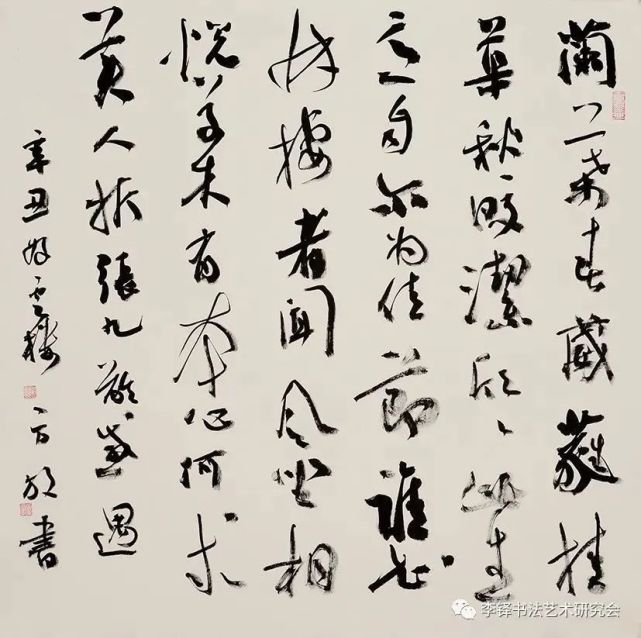 蘭葉春葳蕤桂
華秋皎潔欣〻此生
意自尔为佳節誰知
林棲者聞風坐相
悦草木有本心何求
美人折張九齡感遇
辛丑 樓 書
李铎书法艺术研究会